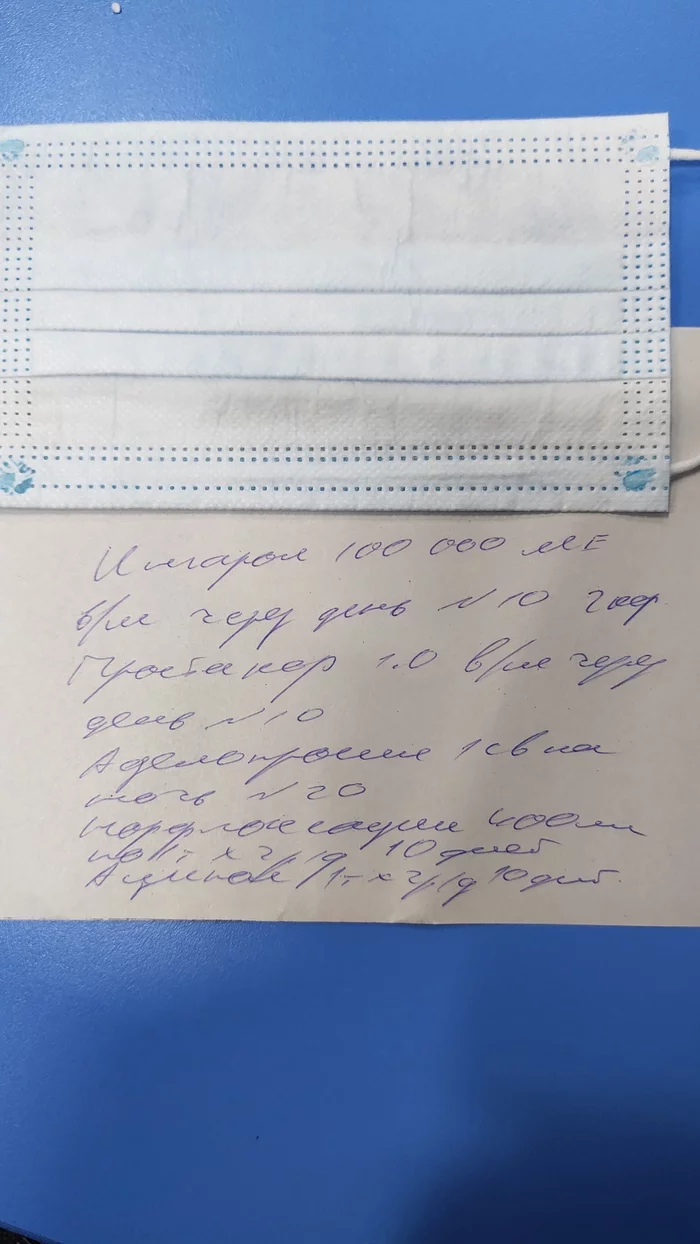 Имгарол 100 000 МЕ
в/м через день N10
Простакор 1.0 в/м через
день N10
Аделопросин 1 св на
ночь N20
Норфлоксацин 400мг
по 1т х 2 р/д 10 дней
1т х 2 р/д 10 дней